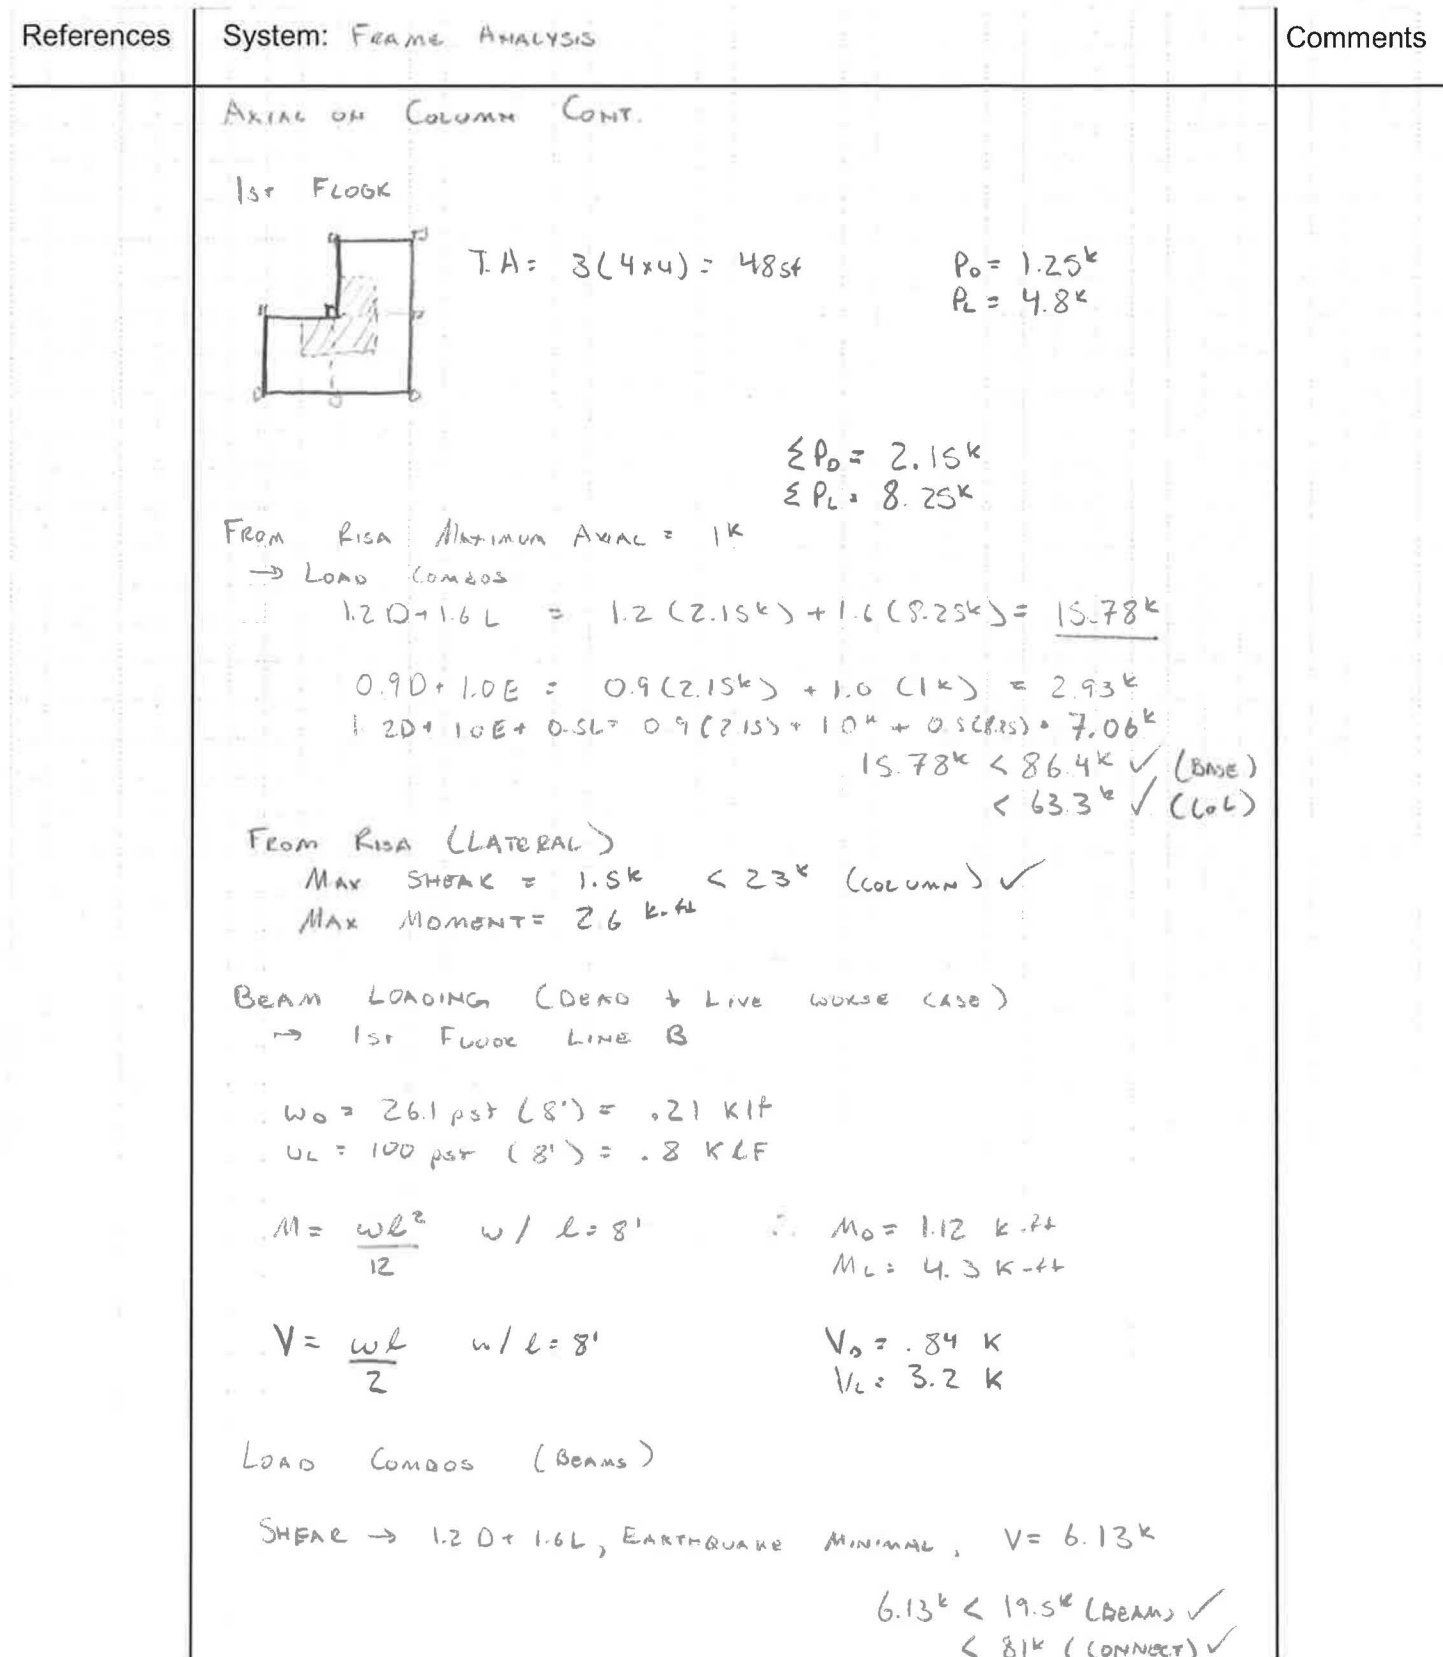 References
System: FRAME ANALYSIS
Comments
AXIAL ON COLUMN CONT.
1ST FLOOR
T.A= 3(4x4) = 48sf
PD = 1.25k
PL = 4.8k
ΣPD = 2.15k
ΣPL = 8.25k
FROM RISA MAXIMUM AXIAL = 1k
→ LOAD COMBOS
1.2D+1.6L = 1.2(2.15k)+1.6(8.25k)= 15.78k
0.9D+1.0E = 0.9(2.15k) + 1.0(1k) = 2.93k
1.2D+1.0E+0.5L= 0.9(2.15)+1.0k+0.5(8.25)=7.06k
15.78k < 86.4k ✓ (BASE)
< 63.3k ✓ (COL)
FROM RISA (LATERAL)
MAX SHEAR = 1.5k < 23k (COLUMN) ✓
MAX MOMENT= 2.6 k-ft
BEAM LOADING (DEAD + LIVE WORSE CASE)
→ 1ST FLOOR LINE B
wD = 26.1 psf (8') = .21 klf
wL = 100 psf (8') = .8 KLF
M = wl²/12 w/ l=8' ∴ MD = 1.12 k-ft
ML = 4.3 K-ft
V = wl/2 w/ l=8' VD = .84 K
VL = 3.2 K
LOAD COMBOS (BEAMS)
SHEAR → 1.2D+1.6L, EARTHQUAKE MINIMAL, V= 6.13k
6.13k < 19.5k (BEAM) ✓
< 81k (CONNECT) ✓